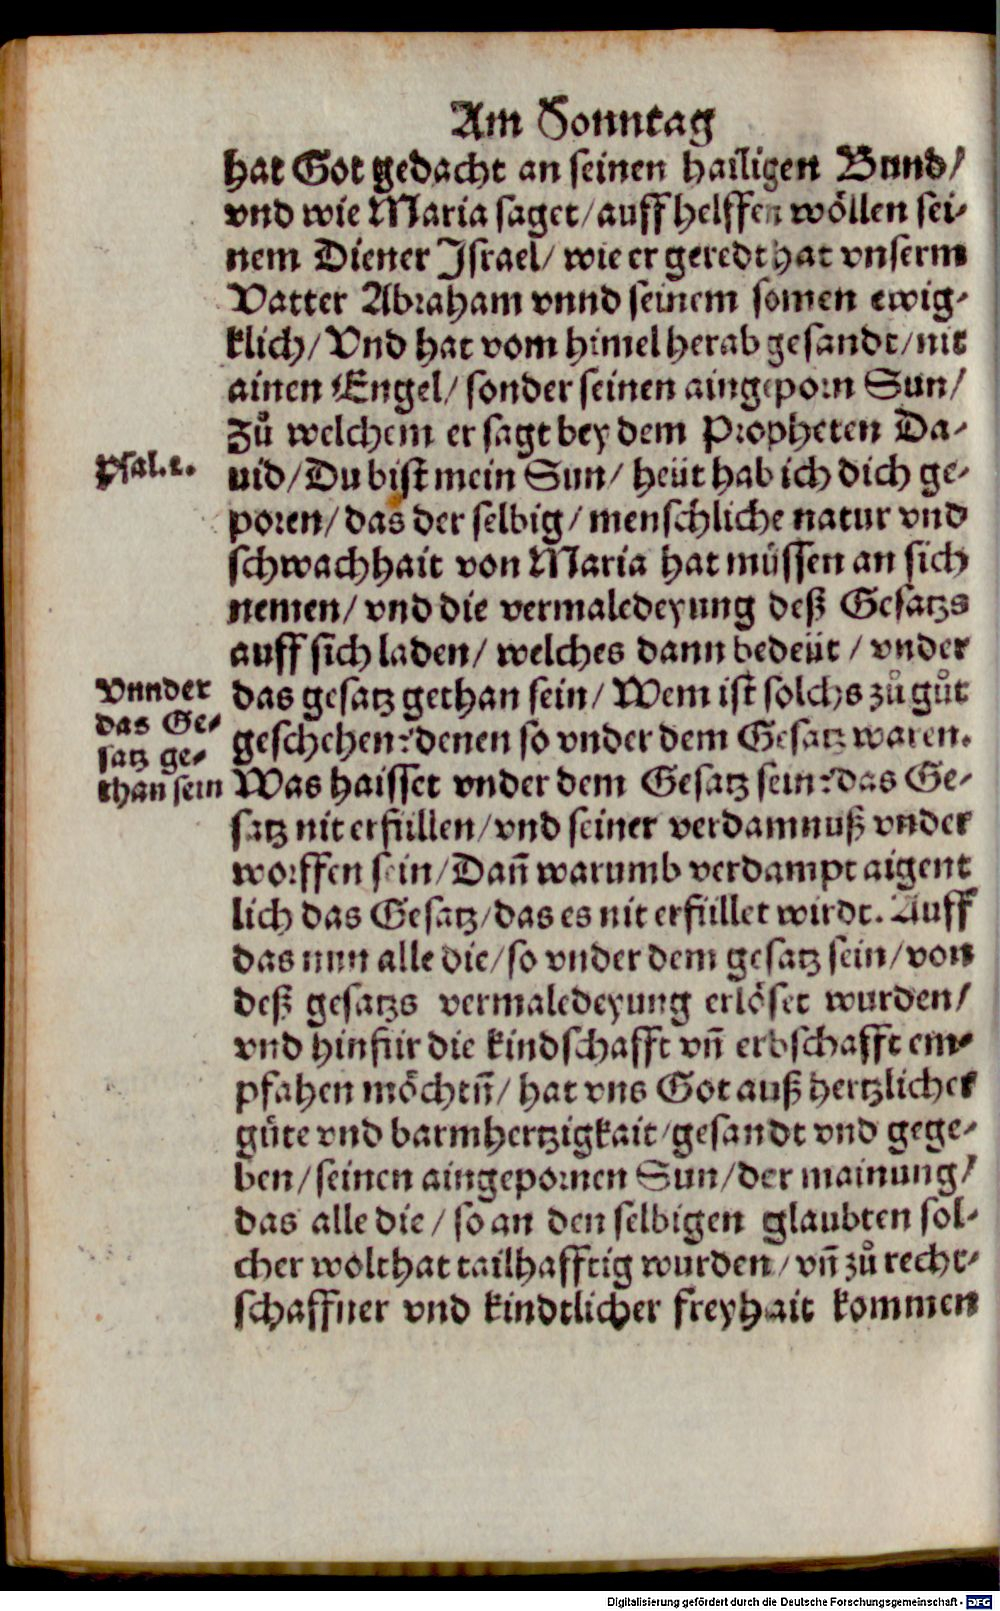 Am Sonntag
hat Got gedacht an seinen hailigen Bund/
vnd wie Maria saget/ auff helffen wöllen sei-
nem Diener Israel/ wie er geredt hat vnserm
Vatter Abraham vnnd seinem somen ewig-
klich/ Vnd hat vom himel herab gesandt/ nit
ainen Engel/ sonder seinen aingeporn Sun/
Zů welchem er sagt bey dem Propheten Da-
Psal.2.
uid/ Du bist mein Sun/ heüt hab ich dich ge-
poren/ das der selbig/ menschliche natur vnd
schwachhait von Maria hat müssen an sich
nemen/ vnd die vermaledeyung deß Gesatzs
auff sich laden/ welches dann bedeüt / vnder
Vnnder
das Ge-
satz ge-
than sein
das gesatz gethan sein/ Wem ist solchs zů gůt
geschehen? denen so vnder dem Gesatz waren.
Was haisset vnder dem Gesatz sein? das Ge-
satz nit erfüllen/ vnd seiner verdamnuß vnder
worffen sein/ Dañ warumb verdampt aigent
lich das Gesatz/ das es nit erfüllet wirdt. Auff
das nun alle die/ so vnder dem gesatz sein/ von
deß gesatzs vermaledeyung erlöset wurden/
vnd hinfür die kindschafft vñ erbschafft em-
pfahen möchtñ/ hat vns Got auß hertzlicher
güte vnd barmhertzigkait/ gesandt vnd gege-
ben/ seinen aingepornen Sun/ der mainung/
das alle die/ so an den selbigen glaubten sol-
cher wolthat tailhafftig wurden/ vñ zů recht-
schaffner vnd kindtlicher freyhait kommen
Digitalisierung gefördert durch die Deutsche Forschungsgemeinschaft - DFG